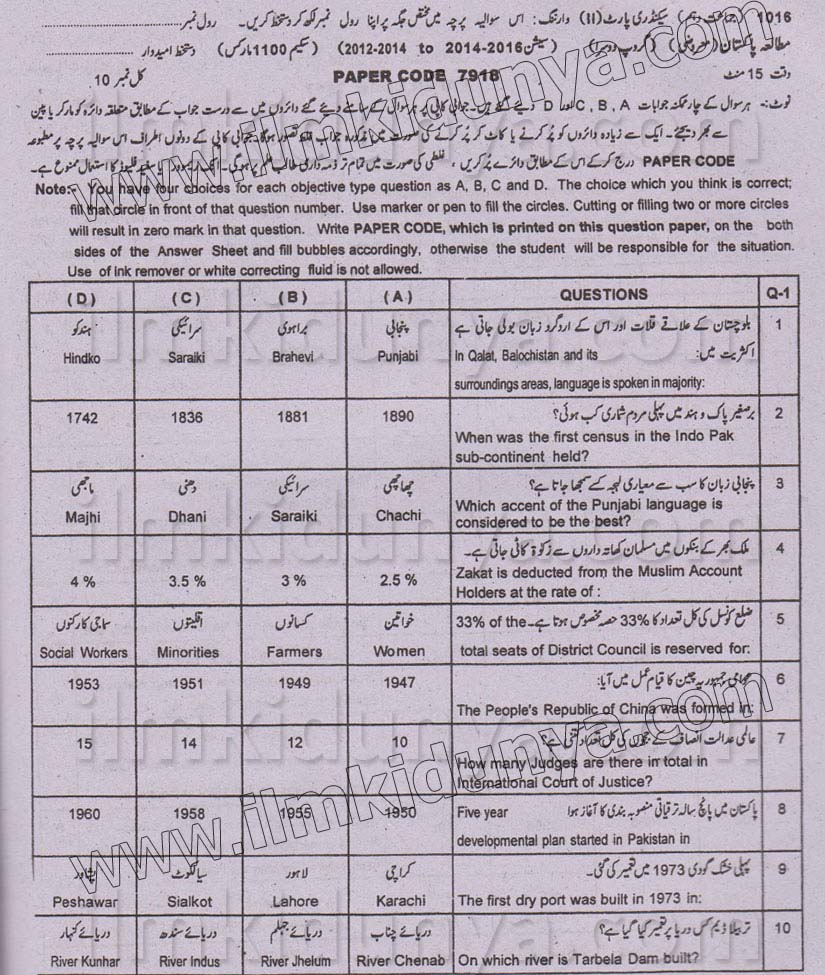 1016 (جماعت دہم) سیکنڈری پارٹ (II) وارننگ: اس سوالیہ پرچہ میں مختص جگہ پر اپنا رول نمبر لکھ کر دستخط کریں۔ رول نمبر
مطالعہ پاکستان (معروضی) (گروپ دوسرا) (سیشن 2014-2016 to 2012-2014) (سکیم 1100 مارکس) دستخط امیدوار
وقت 15 منٹ PAPER CODE 7918 کل نمبر 10
نوٹ:- ہر سوال کے چار ممکنہ جوابات C, B, A اور D دیئے گئے ہیں۔ جوابی کاپی پر ہر سوال کے سامنے دیئے گئے دائروں میں سے درست جواب کے مطابق متعلقہ دائرہ کو مارکر یا پین
سے بھر دیجئے۔ ایک سے زیادہ دائروں کو پُر کرنے یا کاٹ کر پُر کرنے کی صورت میں مذکورہ جواب غلط تصور ہوگا۔ جوابی کاپی کے دونوں اطراف اس سوالیہ پرچہ پر مطبوعہ
PAPER CODE درج کر کے اس کے مطابق دائرے پُر کریں، غلطی کی صورت میں تمام تر ذمہ داری طالب علم پر ہوگی۔ انک ریموور یا سفید فلیوڈ کا استعمال ممنوع ہے۔
Note:- You have four choices for each objective type question as A, B, C and D. The choice which you think is correct;
fill that circle in front of that question number. Use marker or pen to fill the circles. Cutting or filling two or more circles
will result in zero mark in that question. Write PAPER CODE, which is printed on this question paper, on the both
sides of the Answer Sheet and fill bubbles accordingly, otherwise the student will be responsible for the situation.
Use of Ink remover or white correcting fluid is not allowed.
(D) (C) (B) (A) QUESTIONS Q-1
ہندکو سرائیکی براہوی پنجابی بلوچستان کے علاقے قلات اور اس کے اردگرد زبان بولی جاتی ہے 1
اکثریت میں:
Hindko Saraiki Brahevi Punjabi In Qalat, Balochistan and its
surroundings areas, language is spoken in majority:
1742 1836 1881 1890 برصغیر پاک و ہند میں پہلی مردم شماری کب ہوئی؟ 2
When was the first census in the Indo Pak
sub-continent held?
ماجھی دھنی سرائیکی چھاچھی پنجابی زبان کا سب سے معیاری لہجہ کسے سمجھا جاتا ہے؟ 3
Majhi Dhani Saraiki Chachi Which accent of the Punjabi language is
considered to be the best?
ملک بھر کے بنکوں میں مسلمان کھاتہ داروں سے زکوٰۃ کاٹی جاتی ہے۔ 4
4 % 3.5 % 3 % 2.5 % Zakat is deducted from the Muslim Account
Holders at the rate of :
سماجی کارکنوں اقلیتوں کسانوں خواتین ضلع کونسل کی کل تعداد کا 33% حصہ مخصوص ہوتا ہے۔ 33% of the 5
Social Workers Minorities Farmers Women total seats of District Council is reserved for:
1953 1951 1949 1947 عوامی جمہوریہ چین کا قیام عمل میں آیا: 6
The People's Republic of China was formed in:
15 14 12 10 عالمی عدالت انصاف کے ججوں کی کل تعداد کتنی ہے؟ 7
How many Judges are there in total in
International Court of Justice?
1960 1958 1955 1950 پاکستان میں پانچ سالہ ترقیاتی منصوبہ بندی کا آغاز ہوا Five year 8
developmental plan started in Pakistan in
پشاور سیالکوٹ لاہور کراچی پہلی خشک گودی 1973 میں تعمیر کی گئی۔ 9
Peshawar Sialkot Lahore Karachi The first dry port was built in 1973 in:
دریائے کنہار دریائے سندھ دریائے جہلم دریائے چناب تربیلا ڈیم کس دریا پر تعمیر کیا گیا ہے؟ 10
River Kunhar River Indus River Jhelum River Chenab On which river is Tarbela Dam built?
www.ilmkidunya.com
www.ilmkidunya.com
ilmkidunya.com
ilmkidunya.com
ilmkidunya.com
ilmkidunya.com